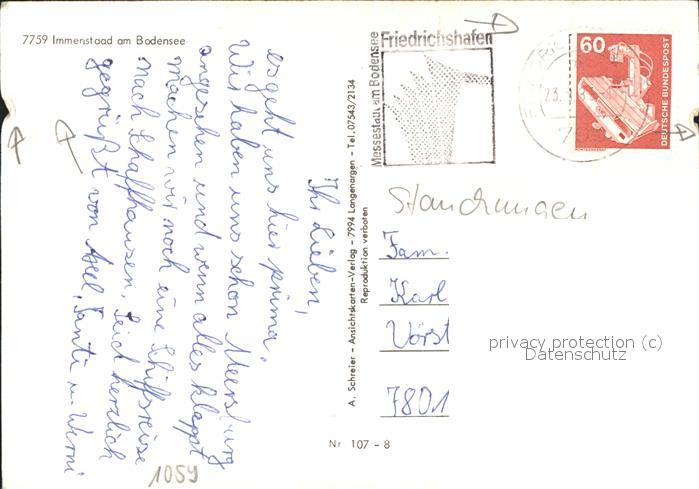 7759 Immenstaad am Bodensee
Ihr Lieben,
es geht uns hier prima.
Wir haben uns schon Meersburg
angesehen und wenn alles klappt
machen wir noch eine Schiffsreise
nach Schaffhausen. Seid herzlich
gegrüßt von
u. Werni
1059
A. Schreier - Ansichtskarten-Verlag - 7994 Langenargen - Tel. 07543/2134
Reproduktion verboten
Nr 107 - 8
Friedrichshafen
Messestadt am Bodensee
23.
60
DEUTSCHE BUNDESPOST
Fam.
Karl
Vörst
7801
privacy protection (c)
Datenschutz